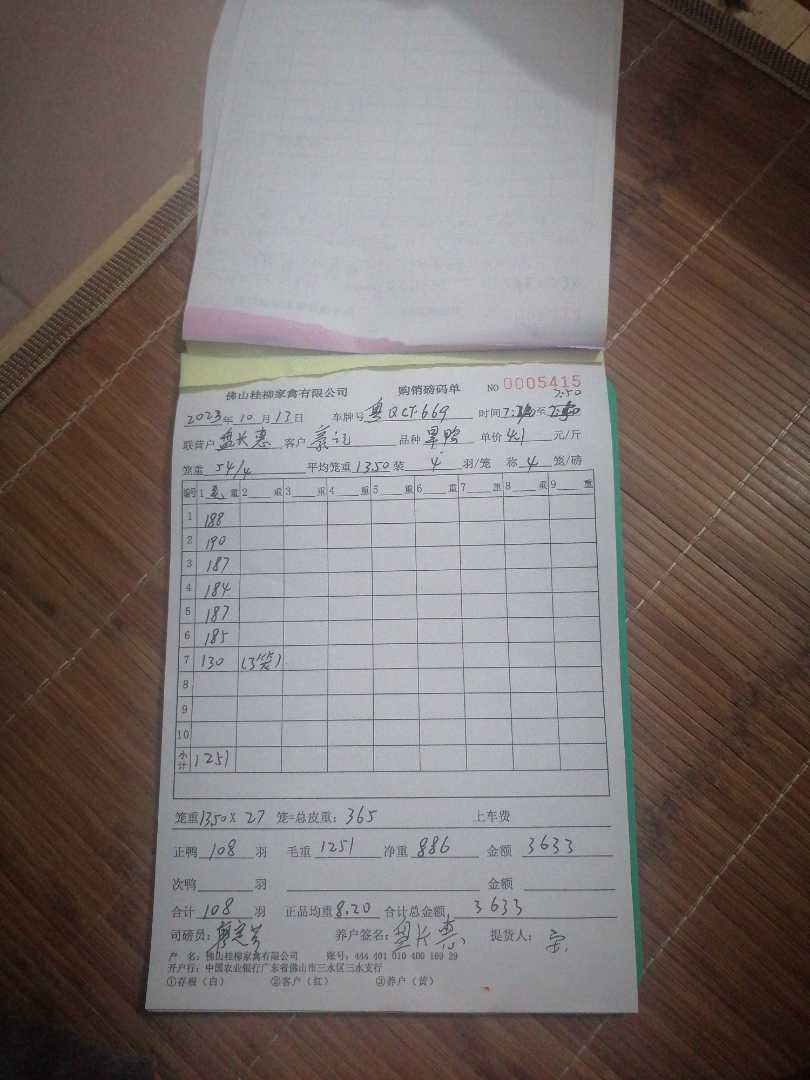 佛山桂柳家禽有限公司 购销磅码单 NO 0005415
7:50
2023年10月13日 车牌号 粤QCT·669 时间 7: 至
联营户 盘长惠 客户 记 品种 黑鸭 单价 4.1 元/斤
笼重 54/4 平均笼重 13.50 装 4 羽/笼 称 4 笼/磅
编号 1 毛 重 2 重 3 重 4 重 5 重 6 重 7 重 8 重 9 重
1 188
2 190
3 187
4 184
5 187
6 185
7 130 (3笼)
8
9
10
小计 1251
笼重 13.50 × 27 笼=总皮重: 365 上车费
正鸭 108 羽 毛重 1251 净重 886 金额 3633
次鸭 羽 金额
合计 108 羽 正品均重 8.20 合计总金额 3633
司磅员: 养户签名: 盘长惠 提货人:
户 名: 佛山桂柳家禽有限公司 账号: 444 401 010 400 169 29
开户行: 中国农业银行广东省佛山市三水区三水支行
①存根(白) ②客户(红) ③养户(黄)